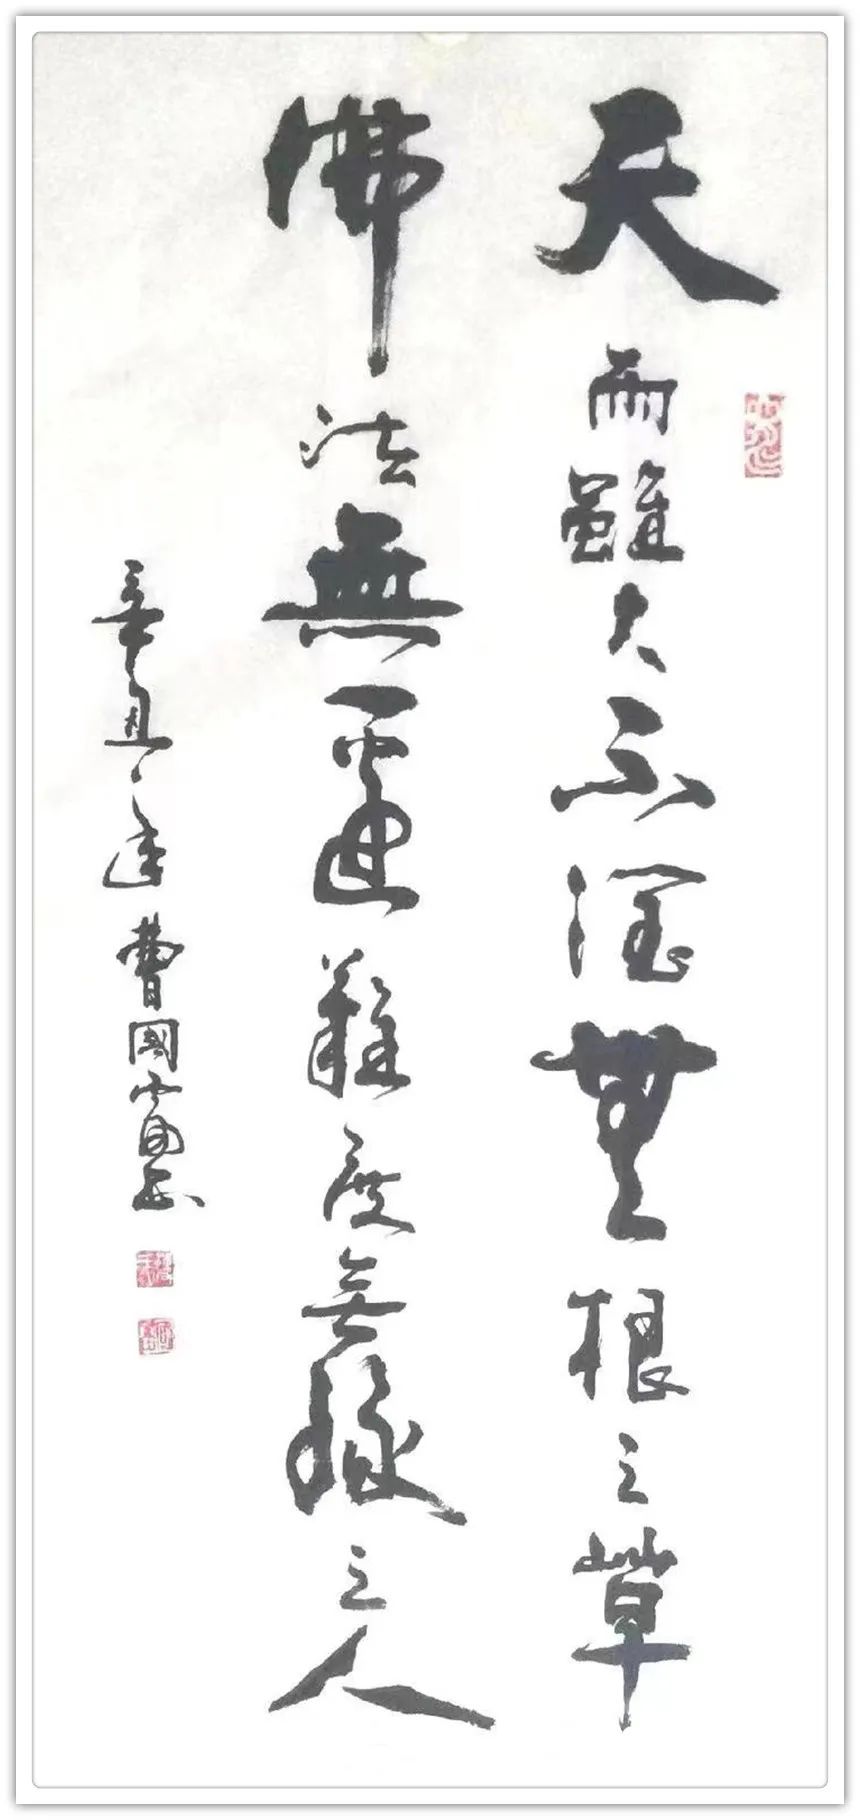 天雨雖大不潤無根之草
佛法無邊難度無緣之人
辛丑年曹國富